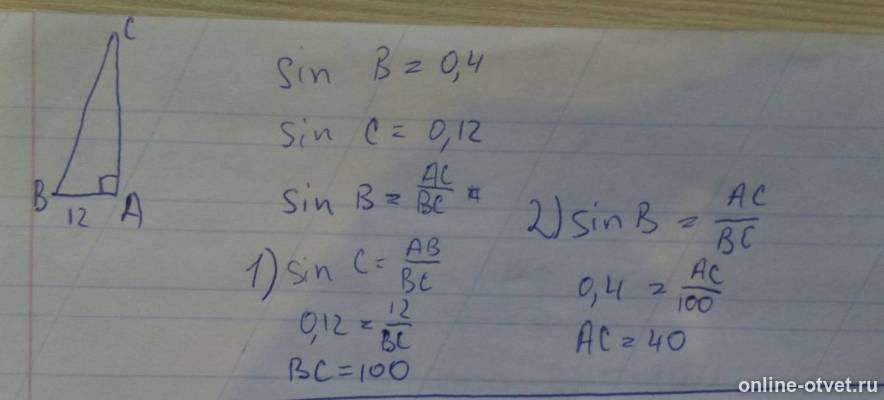 C
B
12
A
sin B = 0,4
sin C = 0,12
sin B = AC/BC
1) sin C = AB/BC
0,12 = 12/BC
BC = 100
2) sin B = AC/BC
0,4 = AC/100
AC = 40
online-otvet.ru